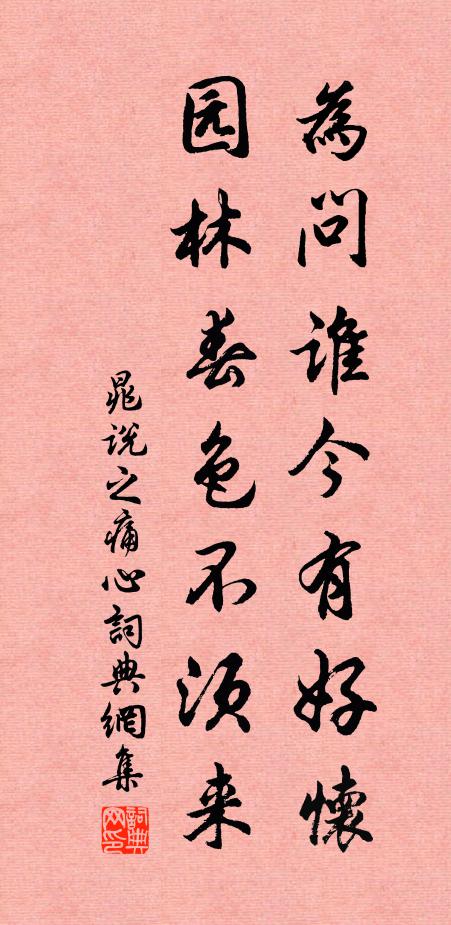 為问谁今有好懷
园林春色不须来
晁说之痛心詞典網集
詞典网印